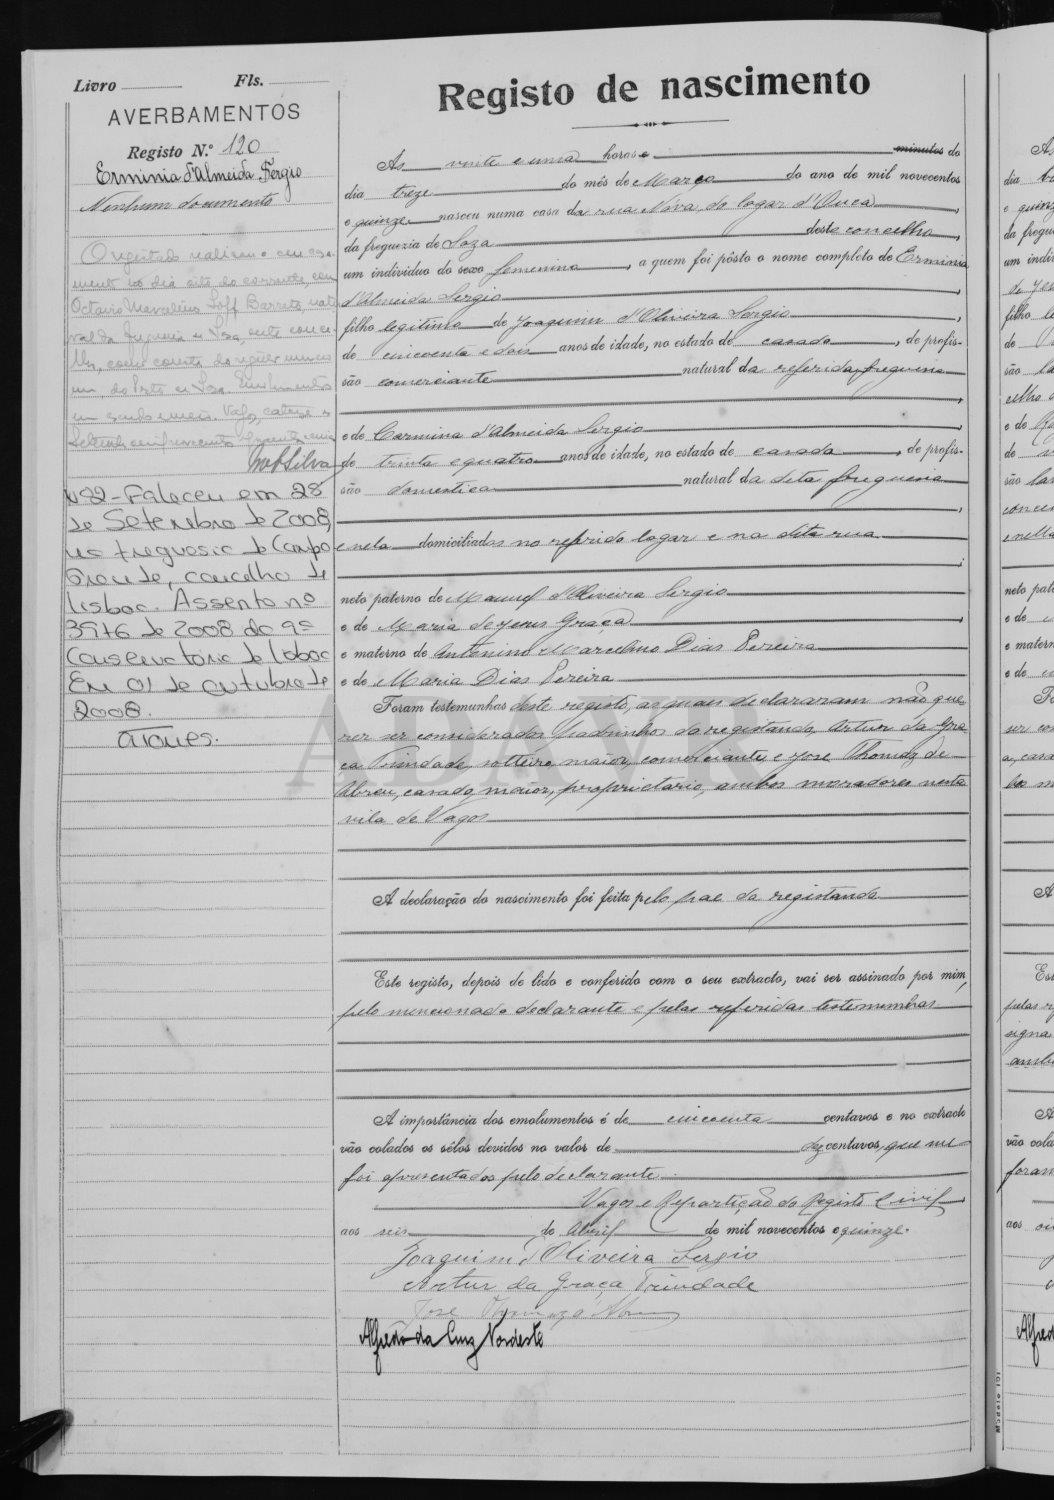 Livro Fls.
AVERBAMENTOS
Registo N.º 120
Erminia d'Almeida Sergio
Nenhum documento
O registado realizou o seu casa-
mento no dia oito do corrente, com
Octavio Marcelino Barreto, natu-
ral da freguesia de Soza, este conce-
lho,
Vagos, catorze
Setembro
MBSilva
Nº2 - Faleceu em 28
de Setembro de 2008,
na freguesia de Campo
Grande, concelho de
Lisboa. Assento nº
3976 de 2008 da 9ª
Conservatória de Lisboa
Em 01 de outubro de
2008.
Registo de nascimento
Às vinte e uma horas e minutos do
dia treze do mês de Março do ano de mil novecentos
e quinze nasceu numa casa da rua Nova do logar d'Ouca
da freguezia de Soza deste concelho,
um individuo do sexo femenino, a quem foi pôsto o nome completo de Erminia
d'Almeida Sergio
filho legitimo de Joaquim d'Oliveira Sergio
de cincoenta e dois anos de idade, no estado de casado, de profis-
são comerciante natural da referida freguesia
e de Carmina d'Almeida Sergio
de trinta e quatro anos de idade, no estado de casada, de profis-
são domestica natural da dita freguesia
e nela domiciliados no referido logar e na dita rua
neto paterno de Manuel d'Oliveira Sergio
e de Maria de Jesus Graça
e materno de Antonino Marcelino Dias Pereira
e de Maria Dias Pereira
Foram testemunhas deste registo, as quais declararam não que-
rer ser considerados padrinhos da registanda, Artur da Gra-
ça Trindade, solteiro, maior, comerciante, e José Thomaz de
Abreu, casado, maior, proprietario, ambos moradores nesta
vila de Vagos
A declaração do nascimento foi feita pelo pae da registanda
Este registo, depois de lido e conferido com o seu extracto, vai ser assinado por mim,
pelo mencionado declarante e pelas referidas testemunhas
A importância dos emolumentos é de cincoenta centavos e no extracto
vão colados os sêlos devidos no valor de dez centavos, que me
foi apresentados pelo declarante.
Vagos e Repartição do Registo Civil,
aos seis de Abril de mil novecentos e quinze.
Joaquim d'Oliveira Sergio
Artur da Graça Trindade
José Thomaz Abreu
Alfredo da Cruz Nordeste
ADAVR
Modelo 101